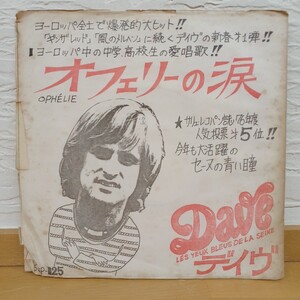 ヨーロッパ全土で爆発的大ヒット!!
「ギンザレッド」「風のメルヘン」に続くデイヴの新春才1弾!!
ヨーロッパ中の中学、高校生の愛唱歌!!
オフェリーの涙
OPHÉLIE
★サリュ・レコパン誌
人気投票才5位!!
今年も大活躍の
セーヌの青い瞳
Dave
LES YEUX BLEUS DE LA SEINE
デイヴ